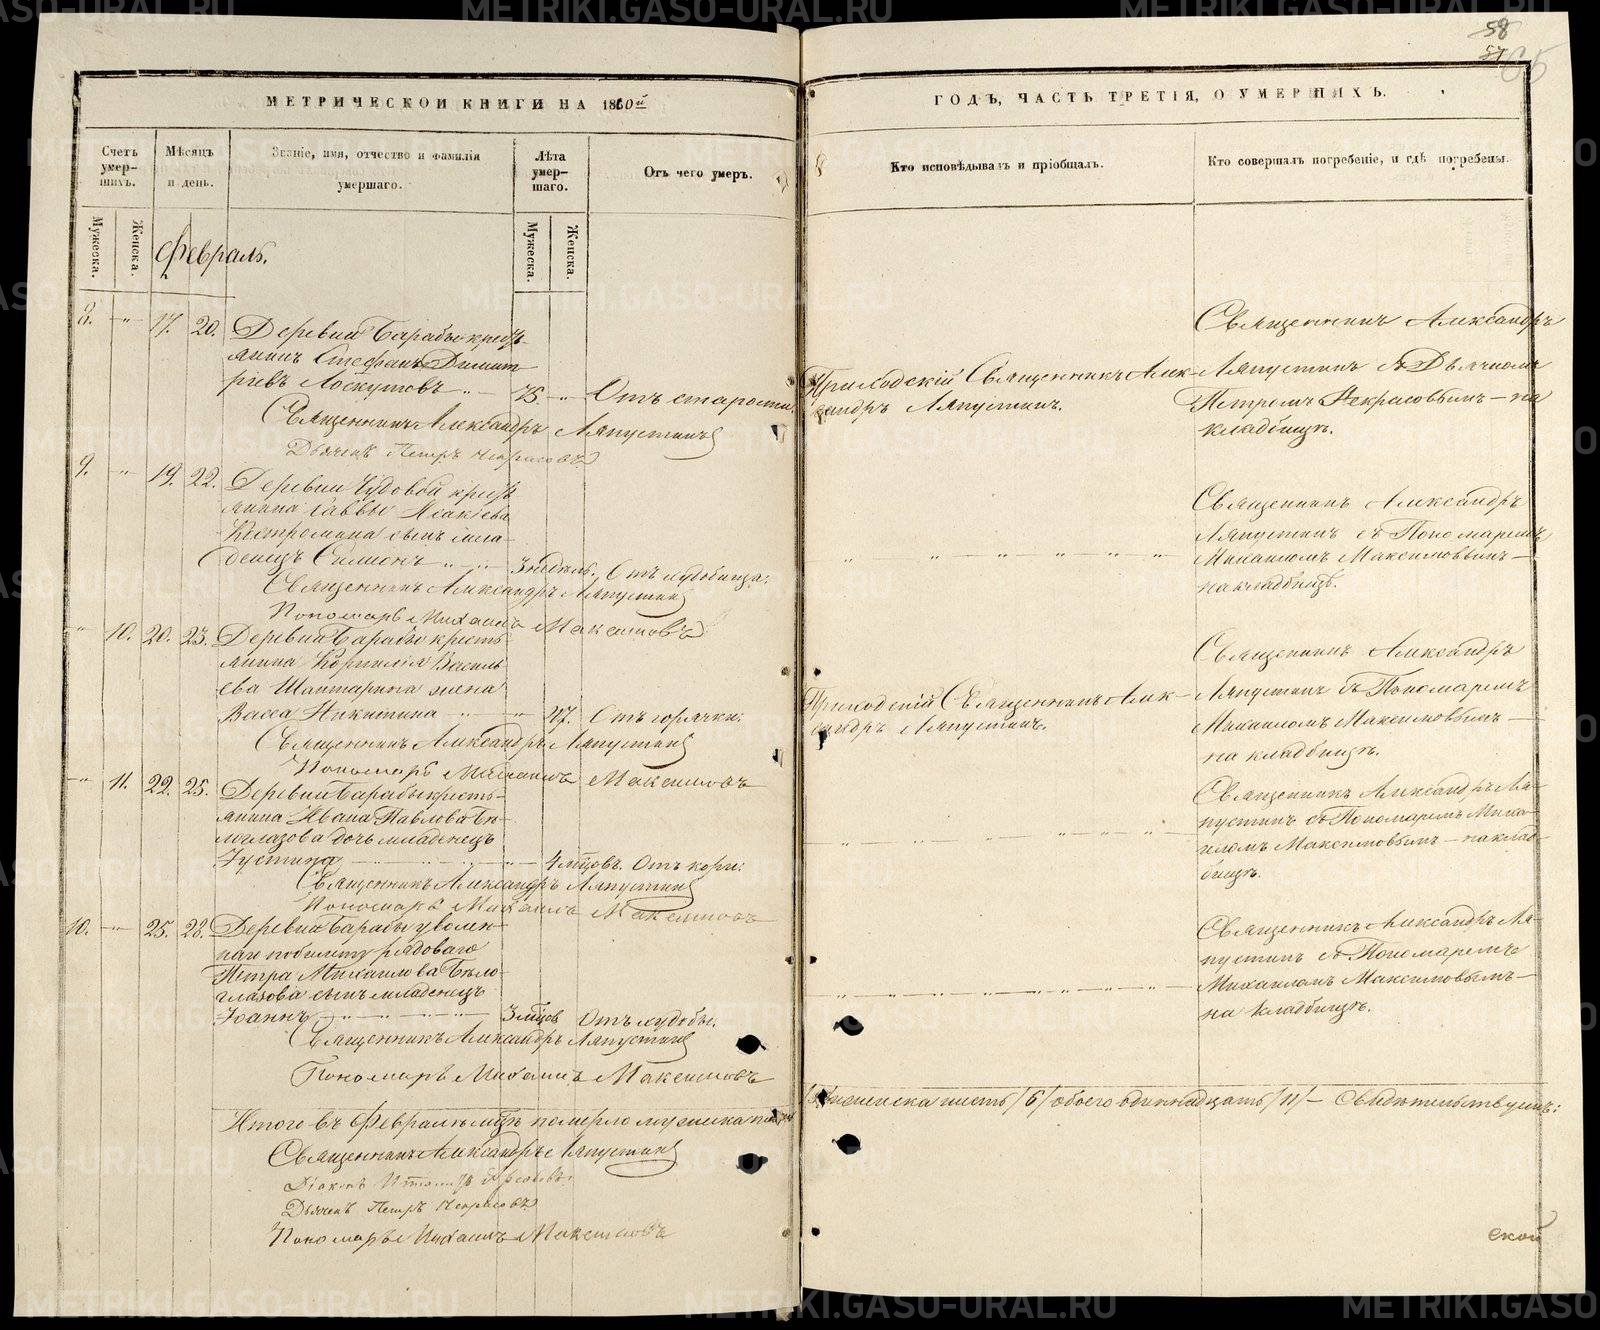 58
57
65
МЕТРИЧЕСКОЙ КНИГИ НА 1860й
ГОДЪ, ЧАСТЬ ТРЕТІЯ, О УМЕРШИХЪ.
Счетъ умер-
шихъ.
Мѣсяцъ
и день.
Званіе, имя, отчество и фамилія
умершаго.
Лѣта
умер-
шаго.
Отъ чего умеръ.
Кто исповѣдывалъ и пріобщалъ.
Кто совершалъ погребеніе, и гдѣ погребены.
Мужеска.
Женска.
Мужеска.
Женска.
Февраль.
8. -"- 17. 20. Деревни Барабы крестъ
янинъ Стефанъ Димит
ріевъ Лоскутовъ " — 75. -"- Отъ старости.
Священникъ Александръ Ляпустинъ
Дьячекъ Петръ Некрасовъ
Приходскій Священникъ Алек-
сандръ Ляпустинъ.
Священникъ Александръ
Ляпустинъ съ Дьячкомъ
Петромъ Некрасовымъ — на
кладбищѣ.
9. -"- 19. 22. Деревни Чудовой крестъ
янина Саввы Исакіева
Костромина сынъ мла-
денецъ Симеонъ " " 3 недѣль. Отъ худобища.
Священникъ Александръ Ляпустинъ
Пономарь Михаилъ Максимовъ
Священникъ Александръ
Ляпустинъ съ Пономаремъ
Михаиломъ Максимовымъ —
на кладбищѣ.
-"- 10. 20. 23. Деревни Барабы кресть
янина Корнилія Василь
ева Шантарина жена
Васса Никитина " — " 47. Отъ горячки.
Священникъ Александръ Ляпустинъ
Пономарь Михаилъ Максимовъ
Приходскій Священникъ Алек-
сандръ Ляпустинъ.
Священникъ Александръ
Ляпустинъ съ Пономаремъ
Михаиломъ Максимовымъ —
на кладбищѣ.
-"- 11. 22. 25. Деревни Барабы кресть-
янина Ивана Павлова Бѣ
логлазова дочь младенецъ
Іустина — " — 4 мѣсцовъ. Отъ кори.
Священникъ Александръ Ляпустинъ
Пономарь Михаилъ Максимовъ
Священникъ Александръ Ля-
пустинъ съ Пономаремъ Миха-
иломъ Максимовымъ — на клад-
бищѣ.
10. -"- 25. 28. Деревни Барабы уволен-
наго по билету рядоваго
Петра Михаилова Бѣло-
глазова сынъ младенецъ
Іоаннъ — " — 3 мѣсцов Отъ худобы.
Священникъ Александръ Ляпустинъ
Пономарь Михаилъ Максимовъ
Священникъ Александръ Ля-
пустинъ съ Пономаремъ
Михаиломъ Максимовымъ —
на кладбищѣ.
Итого въ Февралѣ мцѣ померло мужеска
женска шесть /6/ обоего одиннадцать /11/ — Свидѣтельствуемъ:
Священникъ Александръ Ляпустинъ
Діаконъ
Дьячекъ Петръ Некрасовъ
Пономарь Михаилъ Максимовъ
ской
METRIKI.GASO-URAL.RU